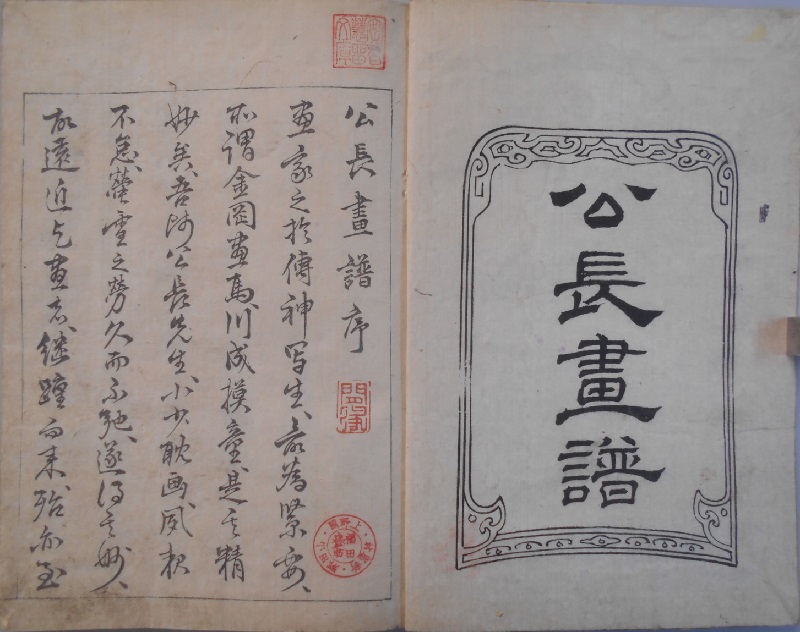 公長畫譜
公長畫譜序
畫家之於傳神写生、最為緊要、
所謂金岡畫馬川成摸童是其精
妙矣吾師公長先生、小少耽画夙夜
不怠螢雪之勞久而不弛、遂得其妙、
故遠近乞畫者、継踵而来殆亦至